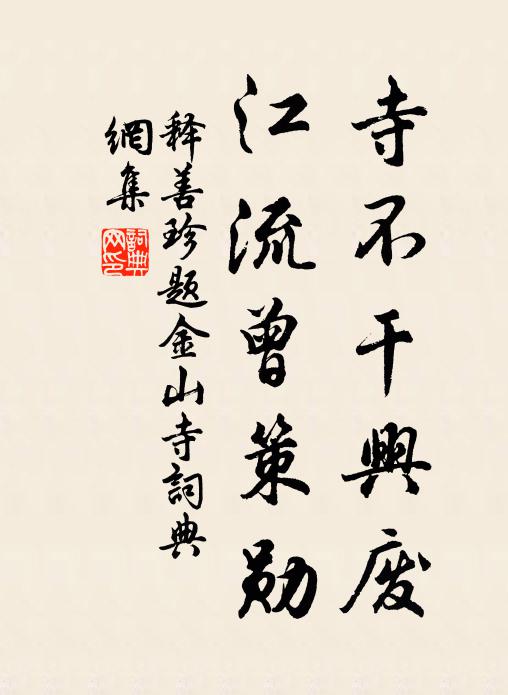 寺不干興废
江流曾策勋
释善珍题金山寺詞典
網集
詞典
网印